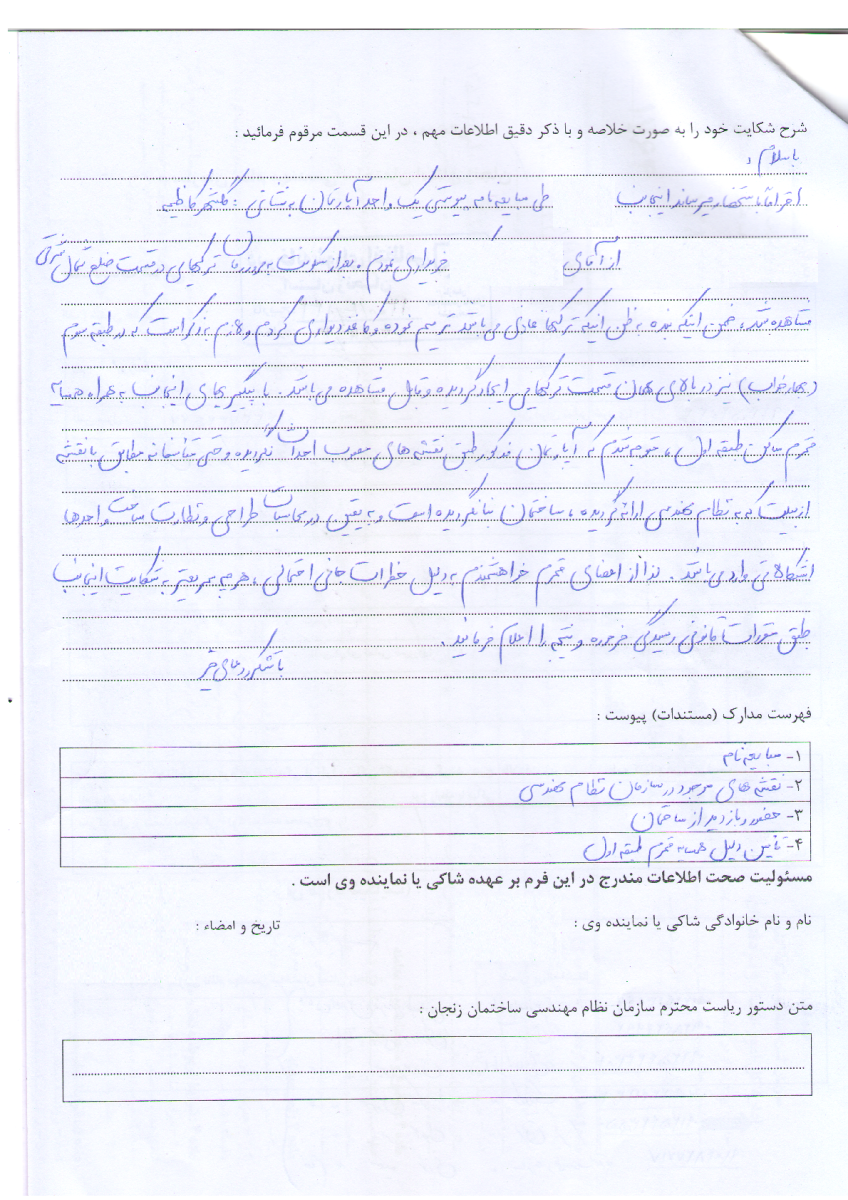 شرح شکایت خود را به صورت خلاصه و با ذکر دقیق اطلاعات مهم ، در این قسمت مرقوم فرمائید :
با سلام ،
احتراماً باستحضار میرساند اینجانب طی مبایعه نامه پیوستی یک واحد آپارتمان به نشانی : گلشهر کاظمیه
از آقای خریداری نمودم . بعد از سکونت به مرور زمان ترکهایی در قسمت ضلع شمال شرقی
مشاهده شد ، ضمن اینکه بنده به ظن اینکه ترکها عادی می باشد ترمیم نموده و کاغذ دیواری کردم و لازم بذکر است که در طبقه سوم
(بهارخواب) نیز در بالای همان قسمت ترکهایی ایجاد گردیده و قابل مشاهده می باشد . با پیگیریهای اینجانب به همراه همسایه
محترم ساکن طبقه اول ، متوجه شدم که آپارتمان مذکور طبق نقشه های مصوب احداث نگردیده و حتی متاسفانه مطابق با نقشه
ازبیلت که به نظام مهندسی ارائه گردیده ، ساختمان بنا نگردیده است و به یقین در محاسبات طراحی و نظارت ساخت واحدها
اشکالاتی وارد می باشد . لذا از اعضای محترم خواهشمندم به دلیل خطرات جانی احتمالی ، هرچه سریعتر به شکایت اینجانب
طبق مقررات قانونی رسیدگی فرموده و نتیجه را اعلام فرمائید .
با تشکر و دعای خیر
فهرست مدارک (مستندات) پیوست :
۱- مبایعه نام
۲- نقشه های موجود در سازمان نظام مهندسی
۳- حضور و بازدید از ساختمان
۴- تامین دلیل همسایه محترم طبقه اول
مسئولیت صحت اطلاعات مندرج در این فرم بر عهده شاکی یا نماینده وی است .
نام و نام خانوادگی شاکی یا نماینده وی : تاریخ و امضاء :
متن دستور ریاست محترم سازمان نظام مهندسی ساختمان زنجان :